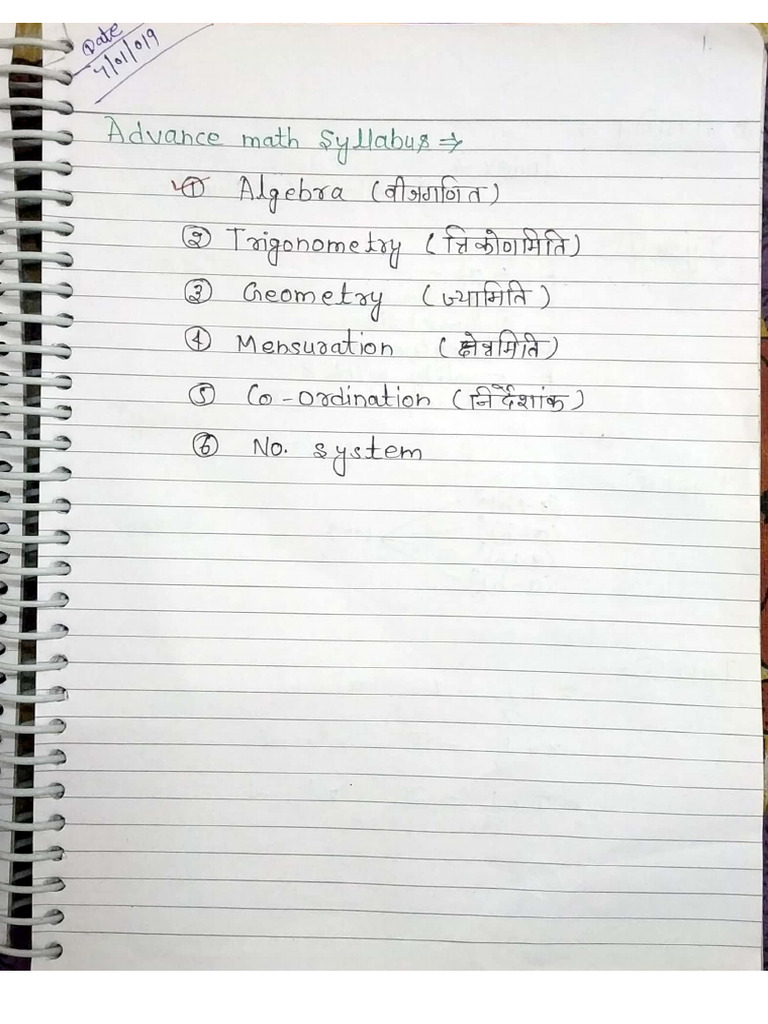 Date
7/01/019
1.
Advance math Syllabus ⇒
① Algebra (बीजगणित)
② Trigonometry (त्रिकोणमिति)
③ Geometry (ज्यामिति)
④ Mensuration (क्षेत्रमिति)
⑤ Co-ordination (निर्देशांक)
⑥ No. system